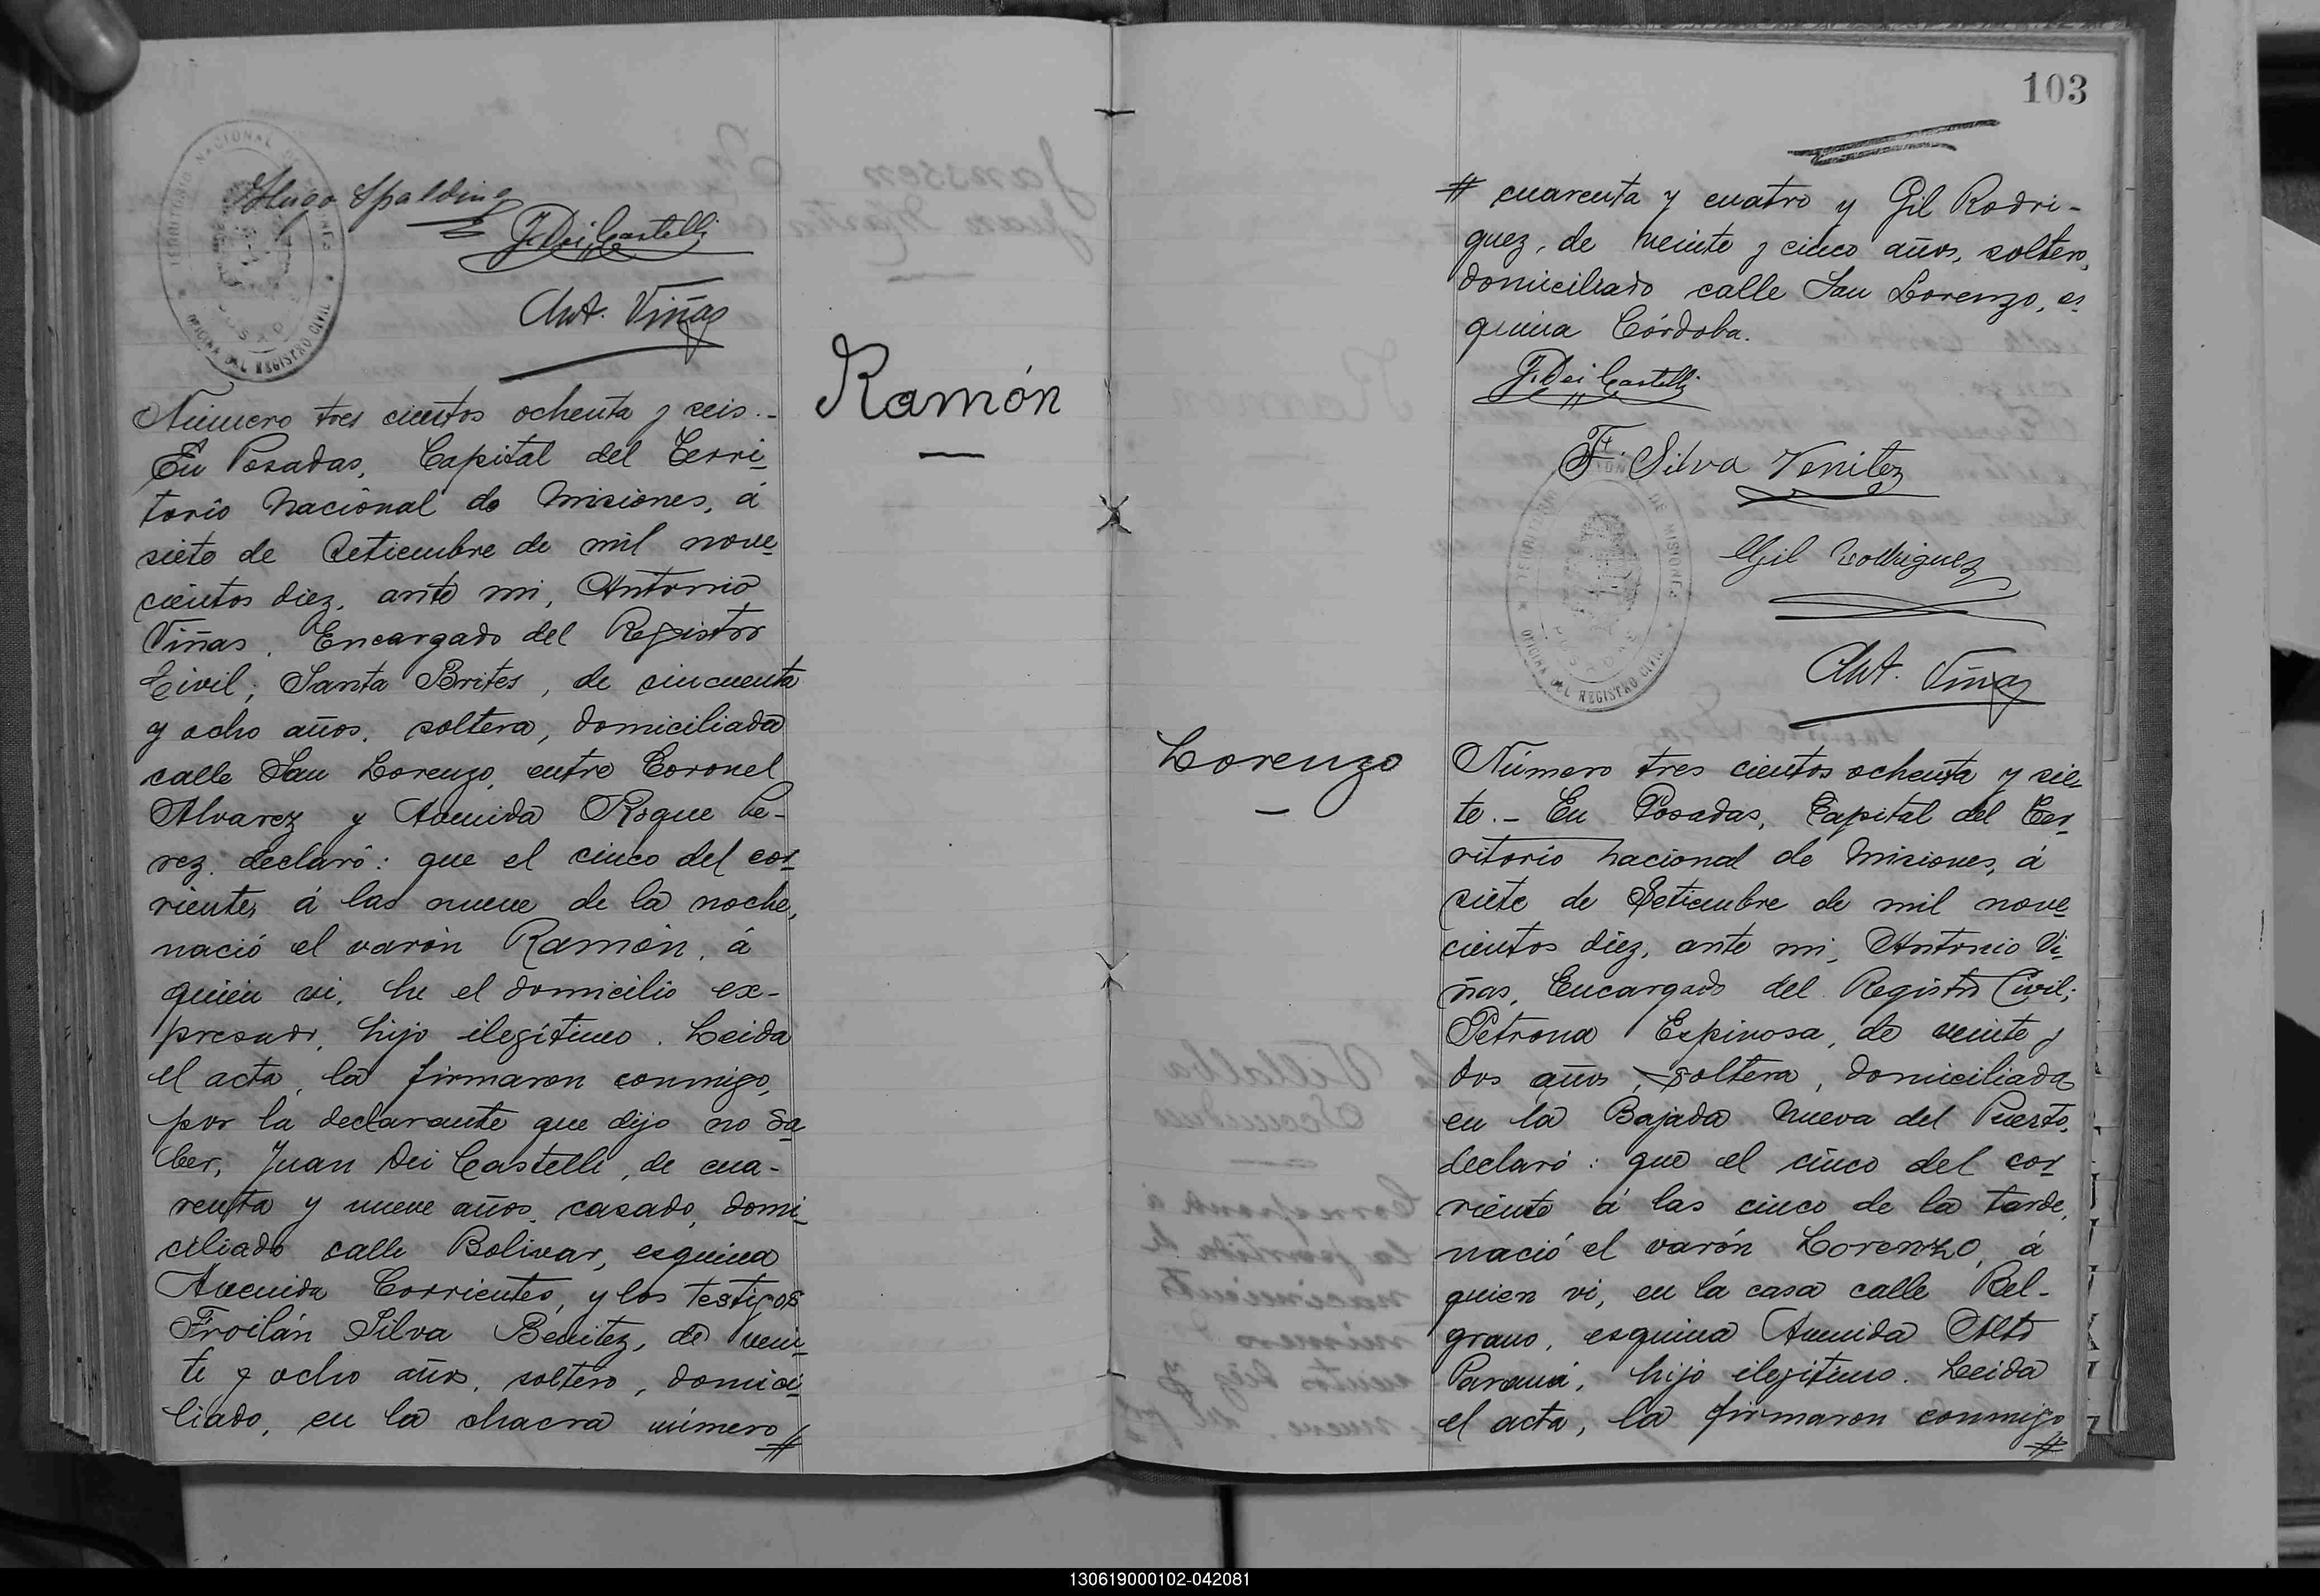 Hugo Spalding
J. Dei Castelli
Ant. Viñas
TERRITORIO NACIONAL DE MISIONES
POSADAS
OFICINA DEL REGISTRO CIVIL
Ramón
Número tres cientos ochenta y seis.-
En Posadas, Capital del Terri-
torio Nacional de Misiones, á
siete de Setiembre de mil nove-
cientos diez, ante mi, Antonio
Viñas, Encargado del Registro
Civil; Santa Brites, de cincuenta
y ocho años, soltera, domiciliada
calle San Lorenzo, entre Coronel
Alvarez y Avenida Roque Pe-
rez, declaró: que el cinco del cor-
riente, á las nueve de la noche,
nació el varón Ramón, á
quien vi, en el domicilio ex-
presado, hijo ilegítimo. Leida
el acta, la firmaron conmigo,
por la declarante que dijo no sa-
ber, Juan Dei Castelli, de cua-
renta y nueve años, casado, domi-
ciliado calle Bolivar, esquina
Avenida Corrientes, y los testigos
Froilán Silva Benitez, de vein-
te y ocho años, soltero, domici-
liado, en la chacra número
#
103
# cuarenta y cuatro y Gil Rodri-
guez, de veinte y cinco años, soltero,
domiciliado calle San Lorenzo, es-
quina Córdoba.
J. Dei Castelli
F. Silva Venitez
Gil Rodriguez
Ant. Viñas
TERRITORIO NACIONAL DE MISIONES
POSADAS
OFICINA DEL REGISTRO CIVIL
Lorenzo
Número tres cientos ochenta y sie-
te.- En Posadas, Capital del Ter-
ritorio Nacional de Misiones, á
siete de Setiembre de mil nove-
cientos diez, ante mi, Antonio Vi-
ñas, Encargado del Registro Civil;
Petrona Espinosa, de veinte y
dos años, soltera, domiciliada
en la Bajada Nueva del Puerto,
declaró: que el cinco del cor-
riente á las cinco de la tarde,
nació el varón Lorenzo, á
quien vi, en la casa calle Bel-
grano, esquina Avenida Alto
Paraná, hijo ilegitimo. Leida
el acta, la firmaron conmigo
#
130619000102-042081